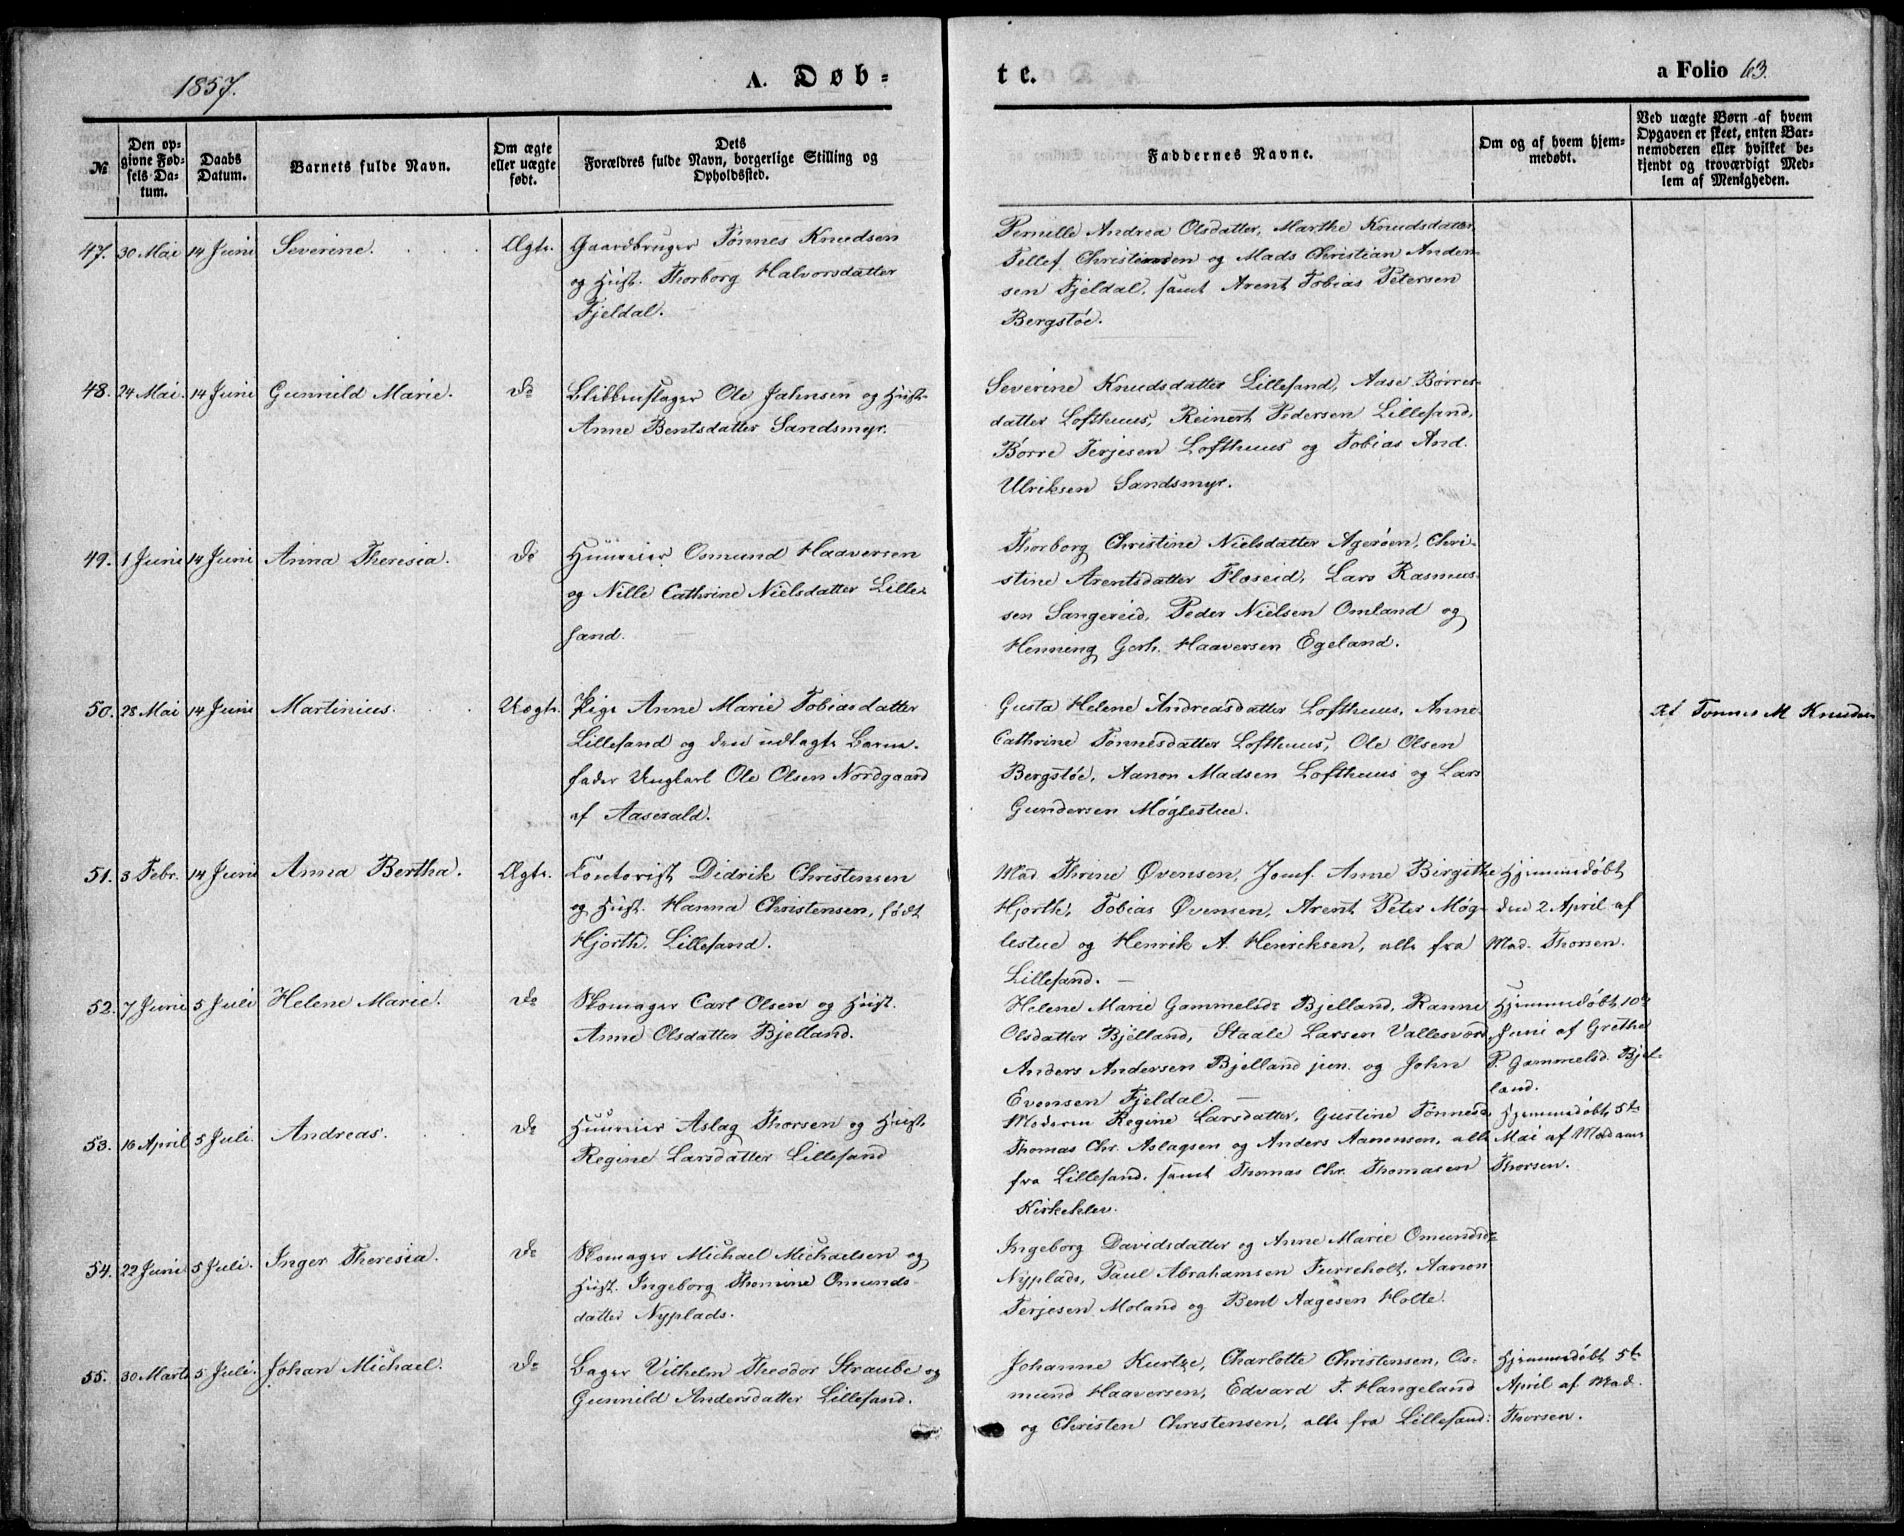 1857.
A. Døb-
te.
a Folio 63.
№
Den opgivne Fødsels Datum.
Daabs Datum.
Barnets fulde Navn.
Om ægte eller uægte født.
Dets Forældres fulde Navn, borgerlige Stilling og Opholdssted.
Faddernes Navne.
Om og af hvem hjemmedøbt.
Ved uægte Børn af hvem Opgaven er skeet, enten Barnemoderen eller hvilket bekjendt og troværdigt Medlem af Menigheden.
47. 30 Mai 14 Juni Severine. Ægte. Gaardbruger Tønnes Knudsen
og Hust. Thorborg Halvorsdatter
Fjeldal.
Pernille Andrea Olsdatter, Marthe Knudsdatter,
Tellef Christensen og Mads Christian Ander-
sen Fjeldal, samt Arent Tobias Petersen
Bergstøe.
48. 24 Mai. 14 Juni Gunnild Marie. do Blikkenslager Ole Jahnsen og Hust.
Anne Bentsdatter Sandsmyr.
Severine Knudsdatter Lillesand, Aase Børres-
datter Lofthuus, Reinert Pedersen Lillesand,
Børre Terjesen Lofthuus og Tobias And.
Ulriksen Sandsmyr.
49. 1 Juni 14 Juni Anna Theresia. do Huureier Osmund Haaversen
og Nille Cathrine Nielsdatter Lille-
sand.
Thorborg Christine Nielsdatter Agerøen, Chri-
stine Arentsdatter Floseid, Lars Rasmus-
sen Sangereid, Peder Nielsen Omland og
Henning Gerh. Haaversen Egeland.
50. 28 Mai 14 Juni Martinius. Uægte. Pige Anne Marie Tobiasdatter
Lillesand og den udlagte Barne-
fader Ungkarl Ole Olsen Nordgaard
af Aaserald.
Gusta Helene Andreasdatter Lofthuus, Anne
Cathrine Tønnesdatter Lofthuus, Ole Olsen
Bergstøe, Aanon Madsen Lofthuus og Lars
Gundersen Møglestue.
Af Tønnes M Knudsen
51. 3 Febr. 14 Juni Anna Bertha. Ægte. Contorist Didrik Christensen
og Hust. Hanna Christensen, født
Hjorth. Lillesand.
Mad. Thrine Øvensen, Jomf. Anne Birgithe
Hjorth, Tobias Øvensen, Arent Peter Møg-
lestue og Henrik A. Henriksen, alle fra
Lillesand. —
Hjemmedøbt
den 2 April af
Mad. Thorsen.
52. 7 Juni 5 Juli Helene Marie. do Skomager Carl Olsen og Hust.
Anne Olsdatter Bjelland.
Helene Marie Gammelsdr Bjelland, Ranne
Olsdatter Bjelland, Staale Larsen Vallesvær,
Anders Andersen Bjelland jun. og John
Evensen Fjeldal. —
Hjemmedøbt 10de
Juni af Grethe
P. Gammelsd. Bjel-
land.
53. 16 April 5 Juli. Andreas. do Huureier Aslag Thorsen og Hust.
Regine Larsdatter Lillesand
Moderen Regine Larsdatter, Gustine Tønnesd.
Thomas Chr. Aslagsen og Anders Aanonsen, alle
fra Lillesand, samt Thomas Chr. Thomasen
Kirkeklev.
Hjemmedøbt 5te
Mai af Madam
Thorsen.
54. 22 Juni 5 Juli. Inger Theresia. do Skomager Michael Michaelsen og
Hust. Ingeborg Thomine Omunds-
datter Nyplads.
Ingeborg Davidsdatter og Anne Marie Omundsdr
Nyplads, Paul Abrahamsen Furreholt, Aanon
Terjesen Moland og Bent Aagesen Holte.
55. 30 Marts 5 Juli. Johan Michael. do Bager Vilhelm Theodor Straube og
Gunnild Andersdatter Lillesand.
Johanne Kurtze, Charlotte Christensen, Os-
mund Haaversen, Edvard T. Hangeland
og Christen Christensen, alle fra Lillesand.
Hjemmedøbt 5te
April af Mad.
Thorsen.